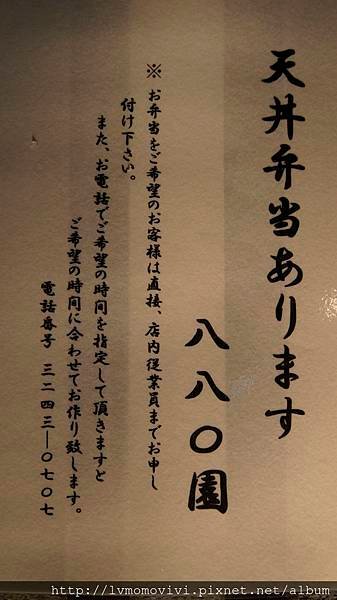 天丼弁当あります
八八〇園
※お弁当をご希望のお客様は直接、店内従業員までお申し
付け下さい。
また、お電話でご希望の時間を指定して頂きますと
ご希望の時間に合わせてお作り致します。
電話番号 三二四三―〇七〇七
http://lvmomovivi.pixnet.net/album